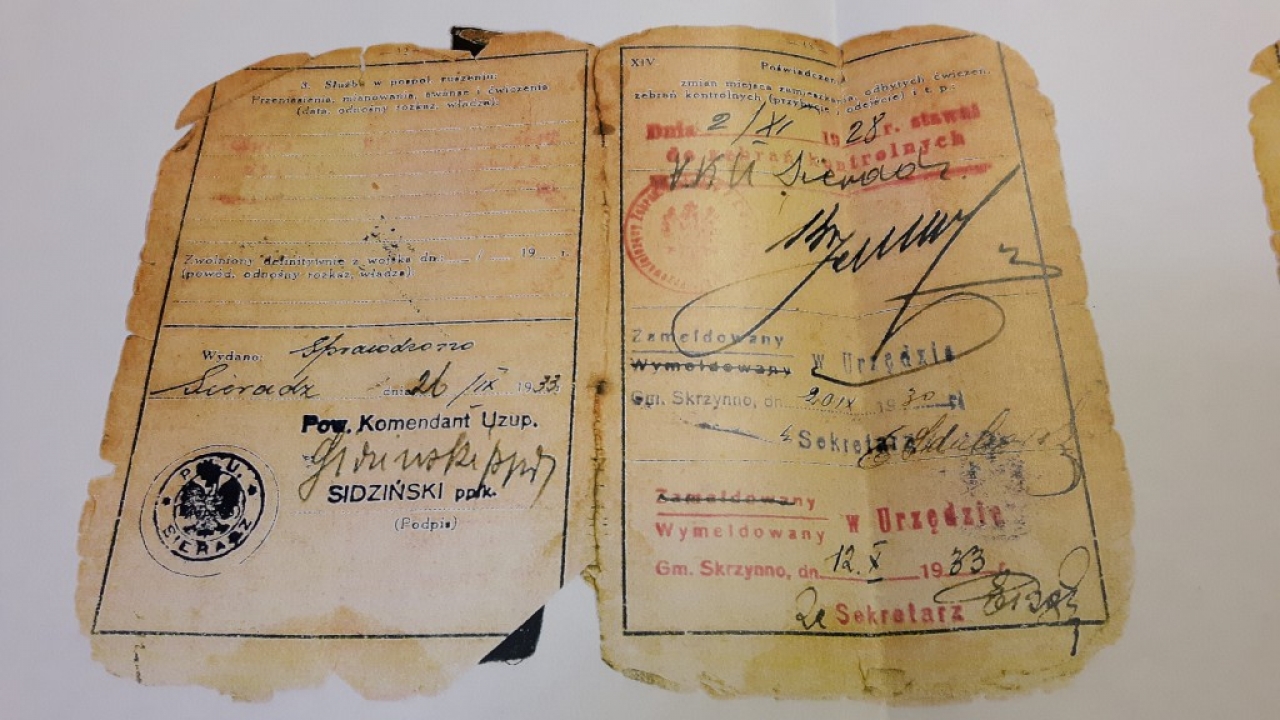 3. Służba w pospol. ruszeniu:
Przeniesienia, mianowania, awanse i ćwiczenia
(data, odnośny rozkaz, władza):
Zwolniony definitywnie z wojska dn: / 19 r.
(powód, odnośny rozkaz, władza):
Wydano: Sprawdzono
Sieradz dnia 26/IX 1933 r.
Pow. Komendant Uzup.
SIDZIŃSKI ppłk.
(Podpis)
P. K. U.
SIERADZ
XIV.
Poświadczenia
zmian miejsca zamieszkania, odbytych ćwiczeń,
zebrań kontrolnych (przybycie, odejście) i t. p.:
Dnia 2/XI 1928 r. stawił
do zebrań kontrolnych
PKU Sieradz.
Zameldowany
Wymeldowany w Urzędzie
Gm. Skrzynno, dn. 20 IX 1930 r.
Sekretarz
Zameldowany
Wymeldowany w Urzędzie
Gm. Skrzynno, dn. 12.X 1933 r.
Za Sekretarz